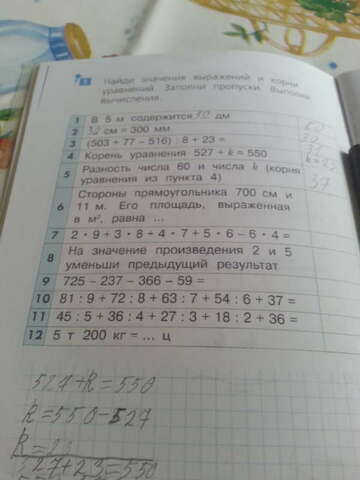 1 Найди значения выражений и корни
уравнений. Заполни пропуски. Выполни
вычисления.
1 В 5 м содержится 50 дм
2 30 см = 300 мм
3 (503 + 77 – 516) : 8 + 23 =
4 Корень уравнения 527 + k = 550
k = 23
5 Разность числа 60 и числа k (корня
уравнения из пункта 4)
37
6 Стороны прямоугольника 700 см и
11 м. Его площадь, выраженная
в м², равна ...
7 2 · 9 + 3 · 8 + 4 · 7 + 5 · 6 – 6 · 4 =
8 На значение произведения 2 и 5
уменьши предыдущий результат
9 725 – 237 – 366 – 59 =
10 81 : 9 + 72 : 8 + 63 : 7 + 54 : 6 + 37 =
11 45 : 5 + 36 : 4 + 27 : 3 + 18 : 2 + 36 =
12 5 т 200 кг = ... ц
527+k=550
k=550-527
k=23
527+23=550